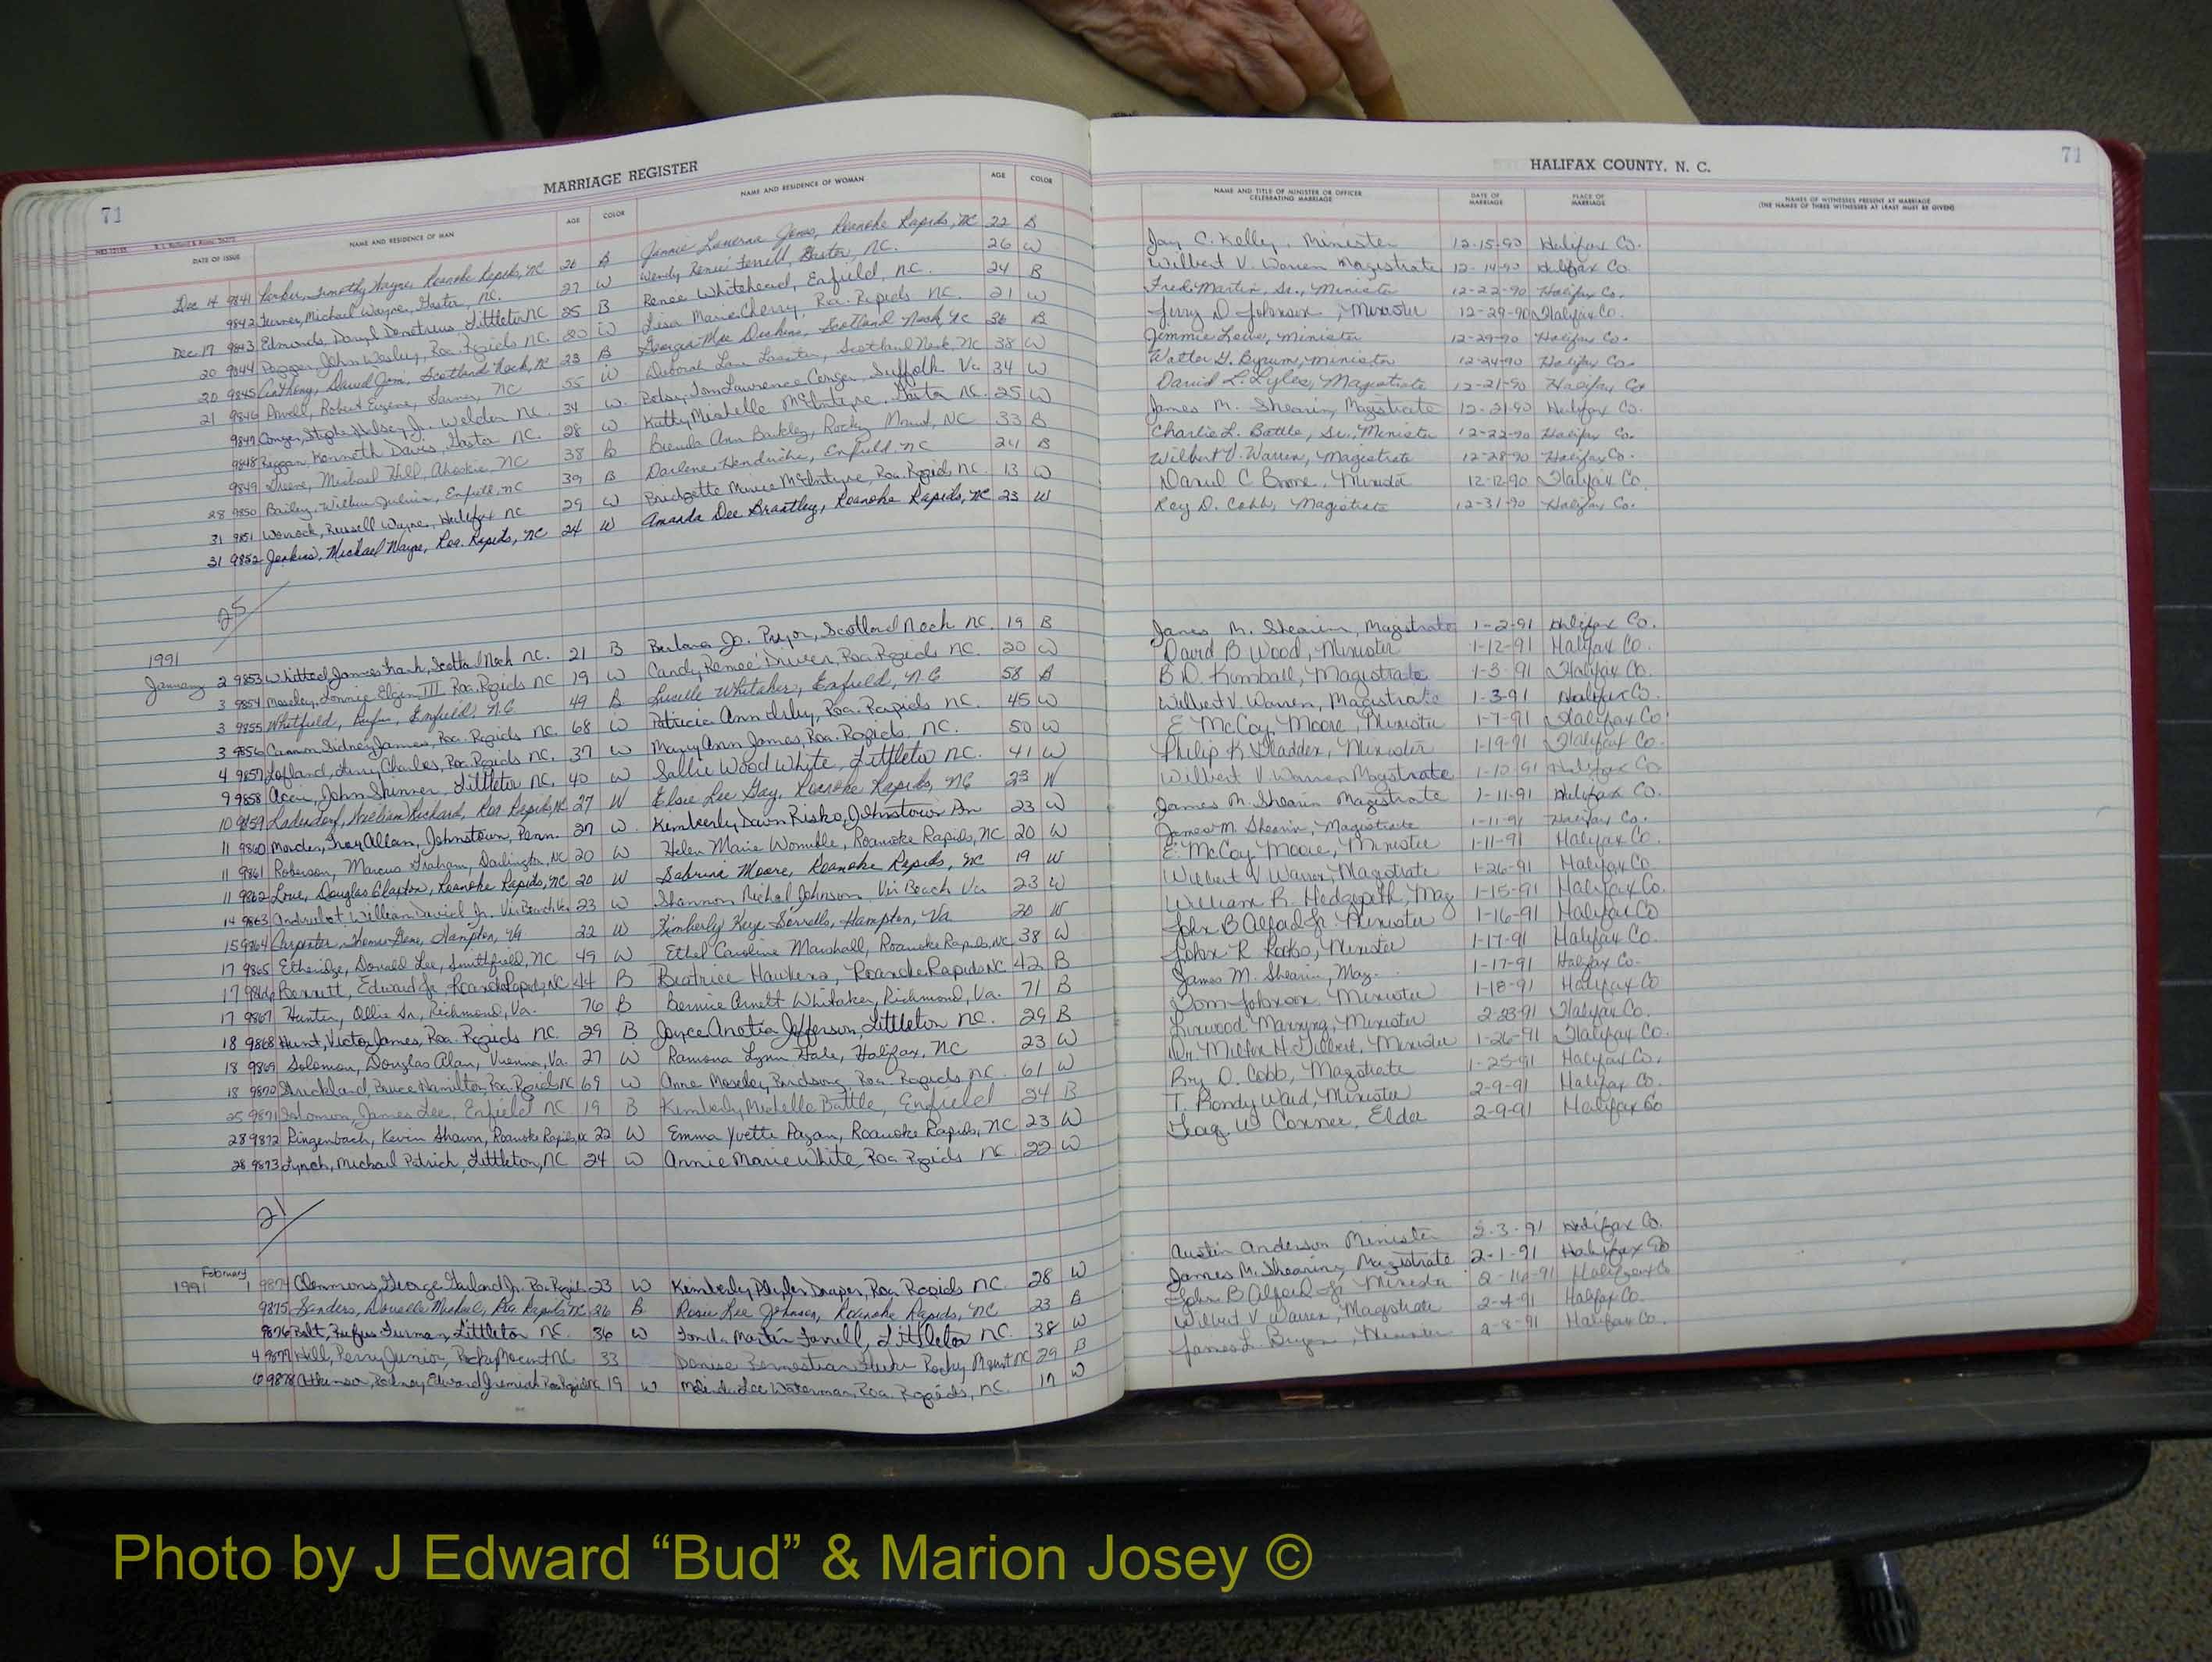 MARRIAGE REGISTER
71
DATE OF ISSUE NAME AND RESIDENCE OF MAN AGE COLOR NAME AND RESIDENCE OF WOMAN AGE COLOR
Dec 14 9841 Timothy Wayne, Roanoke Rapids, NC 26 B Jones, Roanoke Rapids, NC 22 B
9842 Turner, Michael Wayne, Gaston, NC. 27 W Wendy Renee Gaston, NC. 26 W
Dec 17 9843 Edmonds, Daryl Demetrius, Littleton NC 25 B Renee Whitehead, Enfield, NC. 24 B
20 9844 John Wesley, Roa. Rapids NC. 20 W Lisa Marie Cherry, Roa. Rapids NC. 21 W
20 9845 Anthony, David Jim, Scotland Neck, NC 23 B Georgia Mae Scotland Neck, NC 36 B
21 9846 Powell, Robert Eugene, NC 55 W Deborah Scotland Neck, NC 38 W
9847 Conger, Jr. Weldon NC. 34 W. Betsy Lawrence Conger, Suffolk Va 34 W
9848 Kenneth Davis, Gaston NC. 28 W Kathy Mishelle McIntyre, Gaston NC. 25 W
9849 Michael Hill, Ahoskie, NC 38 B Brenda Ann Barkley, Rocky Mount, NC 33 B
28 9850 Bailey, Enfield, NC 39 B Darlene Hendricks, Enfield NC 24 B
31 9851 Russell Wayne, Halifax NC 29 W Bridgette McIntyre, Roa. Rapids, NC. 13 W
31 9852 Jenkins, Michael Wayne, Roa. Rapids, NC 24 W Amanda Dee Brantley, Roanoke Rapids, NC 23 W
25
1991
January 2 9853 Whitted, James Frank, Scotland Neck NC. 21 B Barbara Jo. Pryor, Scotland Neck NC. 19 B
3 9854 Moseley, Lonnie Elgin III Roa. Rapids NC 19 W Candy Renee' Driver, Roa Rapids NC. 20 W
3 9855 Whitfield, Rufus, Enfield, NC 49 B Lucille Whitaker, Enfield, NC 58 B
3 9856 Cannon Sidney James, Roa. Rapids NC. 68 W Patricia Ann Roa. Rapids NC. 45 W
4 9857 Lofland, Charles, Roa. Rapids NC. 37 W Mary Ann James, Roa. Rapids, NC. 50 W
9 9858 John Skinner, Littleton NC. 40 W Sallie Wood White, Littleton NC. 41 W
10 9859 William Richard, Roa Rapids, NC 27 W Elsie Lee Gay, Roanoke Rapids, NC 23 W
11 9860 Troy Allan, Johnstown, Penn. 27 W. Kimberly Dawn Risko, Johnstown Pn 23 W
11 9861 Roberson, Marcus Graham, Darlington, NC 20 W Helen Marie Womble, Roanoke Rapids, NC 20 W
11 9862 Love, Douglas Clayton, Roanoke Rapids, NC 20 W Sabrina Moore, Roanoke Rapids, NC 19 W
14 9863 William David Jr. Vir Beach Va 23 W Shannon Johnson Vir Beach Va 23 W
15 9864 Carpenter, Thomas Gene, Hampton, Va 22 W Kimberly Kaye Sorrells, Hampton, Va 20 W
17 9865 Etheridge, Donald Lee, Smithfield, NC 49 W Ethel Caroline Marshall, Roanoke Rapids, NC 38 W
17 9866 Bennett, Edward Jr, Roanoke Rapids, NC 44 B Beatrice Hawkins, Roanoke Rapids NC 42 B
17 9867 Hunter, Ollie Sr, Richmond, Va. 76 B Bernice Arnett Whitaker, Richmond, Va. 71 B
18 9868 Hunt, Victor James, Roa. Rapids NC. 29 B Joyce Jefferson, Littleton NC. 29 B
18 9869 Solomon, Douglas Alan, Vienna, Va. 27 W Ramona Lynn Hale, Halifax, NC 23 W
18 9870 Strickland, Bruce Hamilton, Roa. Rapids NC 69 W Anne Moseley Birdsong, Roa. Rapids NC. 61 W
25 9871 Solomon, James Lee, Enfield NC 19 B Kimberly Michelle Battle, Enfield 24 B
28 9872 Ringenbach, Kevin Shawn, Roanoke Rapids, NC 22 W Emma Yvette Pagan, Roanoke Rapids, NC 23 W
28 9873 Lynch, Michael Patrick, Littleton, NC 24 W Annie Marie White, Roa Rapids NC. 22 W
21
February
1991 1 9874 Clemmons, George Garland Jr. Roa. Rapids 23 W Kimberly Draper, Roa. Rapids NC. 28 W
9875 Sanders, Michael, Roa Rapids NC 26 B Rosa Lee Johnson, Roanoke Rapids, NC 23 B
9876 Bolt, Rufus Furman, Littleton NC. 36 W Martin Littleton NC. 38 W
4 9877 Hill, Perry Junior, Rocky Mount NC 33 Denise Rocky Mount NC 29 B
6 9878 Atkinson, Rodney Edward Jeremiah Roa Rapids NC 19 W Lee Waterman, Roa. Rapids, NC. 17 W
HALIFAX COUNTY, N. C.
71
NAME AND TITLE OF MINISTER OR OFFICER CELEBRATING MARRIAGE DATE OF MARRIAGE PLACE OF MARRIAGE NAMES OF WITNESSES PRESENT AT MARRIAGE (THE NAMES OF THREE WITNESSES AT LEAST MUST BE GIVEN)
Jay C. Kelly, Minister 12-15-90 Halifax Co.
Wilbert V. Warren Magistrate 12-14-90 Halifax Co
Fred Martin, Sr., Minister 12-22-90 Halifax Co.
Jerry D Johnson, Minister 12-29-90 Halifax Co.
Jimmie Lowe, Minister 12-29-90 Halifax Co.
Walter G. Byrum, Minister 12-24-90 Halifax Co.
David L. Lyles, Magistrate 12-21-90 Halifax Co
James M. Shearin, Magistrate 12-21-90 Halifax Co.
Charlie L. Battle, Sr., Minister 12-22-90 Halifax Co.
Wilbert V. Warren, Magistrate 12-28-90 Halifax Co.
C Boone, Minister 12-12-90 Halifax Co.
Roy D. Cobb, Magistrate 12-31-90 Halifax Co.
James M. Shearin, Magistrate 1-2-91 Halifax Co.
David B Wood, Minister 1-12-91 Halifax Co.
B. D. Kimball, Magistrate 1-3-91 Halifax Co.
Wilbert V. Warren, Magistrate 1-3-91 Halifax Co.
E McCoy Moore, Minister 1-7-91 Halifax Co
Philip K Gladden, Minister 1-19-91 Halifax Co.
Wilbert V Warren Magistrate 1-10-91 Halifax Co
James M. Shearin Magistrate 1-11-91 Halifax Co.
James M. Shearin, Magistrate 1-11-91 Halifax Co.
E. McCoy Moore, Minister 1-11-91 Halifax Co
Wilbert V Warren, Magistrate 1-26-91 Halifax Co
William R. Hedgepeth, Mag 1-15-91 Halifax Co.
John B Alford Jr. Minister 1-16-91 Halifax Co
John R Minister 1-17-91 Halifax Co.
James M. Shearin, Mag. 1-17-91 Halifax Co.
Johnson Minister 1-18-91 Halifax Co
Linwood Manning, Minister 2-23-91 Halifax Co.
Dr. Milton H. Gilbert, Minister 1-26-91 Halifax Co.
Roy D. Cobb, Magistrate 1-25-91 Halifax Co.
T. Bondy Ward, Minister 2-9-91 Halifax Co.
W Conner, Elder 2-9-91 Halifax Co
Austin Anderson Minister 2-3-91 Halifax Co.
James M. Shearin, Magistrate 2-1-91 Halifax Co
John B Alford Jr Minister 2-16-91 Halifax Co
Wilbert V Warren, Magistrate 2-4-91 Halifax Co.
James L. Minister 2-8-91 Halifax Co.
Photo by J Edward “Bud” & Marion Josey ©